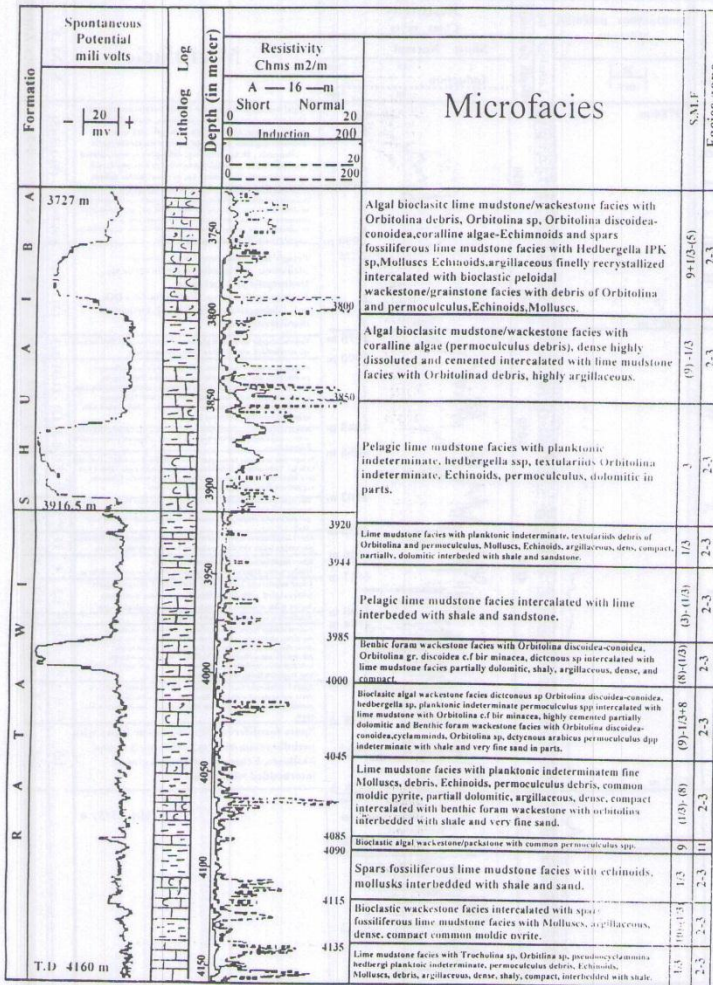 Formatio
Spontaneous
Potential
mili volts
- 20 +
mv
Litholog Log
Depth (in meter)
Resistivity
Chms m2/m
A — 16 — m
Short Normal
0 20
0 Induction 200
0 20
0 200
Microfacies
S.M.F
Facies zone
SHUAIBA
RATAWI
3727 m
3916.5 m
T.D 4160 m
3750
3800
3850
3900
3950
4000
4050
4100
4150
3800
3850
3920
3944
3985
4000
4045
4085
4090
4115
4135
Algal bioclasitc lime mudstone/wackestone facies with
Orbitolina debris, Orbitolina sp, Orbitolina discoidea-
conoidea,coralline algae-Echimnoids and spars
fossiliferous lime mudstone facies with Hedbergella IPK
sp,Molluscs Echinoids,argillaceous finelly recrystallized
intercalated with bioclastic peloidal
wackestone/grainstone facies with debris of Orbitolina
and permoculculus,Echinoids,Molluscs.
9+1/3-(5)
2-3
Algal bioclasitc mudstone/wackestone facies with
coralline algae (permoculculus debris), dense highly
dissoluted and cemented intercalated with lime mudstone
facies with Orbitolinad debris, highly argillaceous.
(9) -1/3
2-3
Pelagic lime mudstone facies with planktonic
indeterminate, hedbergella ssp, textulariids Orbitolina
indeterminate, Echinoids, permoculculus, dolomitic in
parts.
3
2-3
Lime mudstone facies with planktonic indeterminate, textulariids debris of
Orbitolina and permoculculus, Molluscs, Echinoids, argillaceous, dens, compact,
partially, dolomitic interbeded with shale and sandstone.
1/3
2-3
Pelagic lime mudstone facies intercalated with lime
interbeded with shale and sandstone.
(3)- (1/3)
2-3
Benthic foram wackestone facies with Orbitolina discoidea-conoidea,
Orbitolina gr. discoidea c.f bir minacea, dictcnous sp intercalated with
lime mudstone facies partially dolomitic, shaly, argillaceous, dense, and
compact.
(8)-(1/3)
2-3
Bioclasitc algal wackestone facies dictconous sp Orbitolina discoidea-conoidea,
hedbergella sp, planktonic indeterminate permoculculus spp intercalated with
lime mudstone with Orbitolina c.f bir minacea, highly cemented partially
dolomitic and Benthic foram wackestone facies with Orbitolina discoidea-
conoidea,cyclamminds, Orbitolina sp, dctycnous arabicus permoculculus dpp
indeterminate with shale and very fine sand in parts.
(9)-1/3+8
2-3
Lime mudstone facies with planktonic indeterminatem fine
Molluscs, debris, Echinoids, permoculculus debris, common
moldic pyrite, partiall dolomitic, argillaceous, dense, compact
intercalated with benthic foram wackestone with orbitolina
interbedded with shale and very fine sand.
(1/3)- (8)
2-3
Bioclastic algal wackestone/packstone with common permoculculus spp.
9
11
Spars fossiliferous lime mudstone facies with echinoids,
mollusks interbedded with shale and sand.
1/3
2-3
Bioclastic wackestone facies intercalated with spars
fossiliferous lime mudstone facies with Molluscs, argillaceous,
dense, compact common moldic pyrite.
2-3
Lime mudstone facies with Trocholina sp, Orbitlina sp, pseudocyclammina
hedbergi planktoic indeterminate, permoculculus debris, Echinoids,
Molluscs, debris, argillaceous, dense, shaly, compact, interbedded with shale.
1/3
2-3